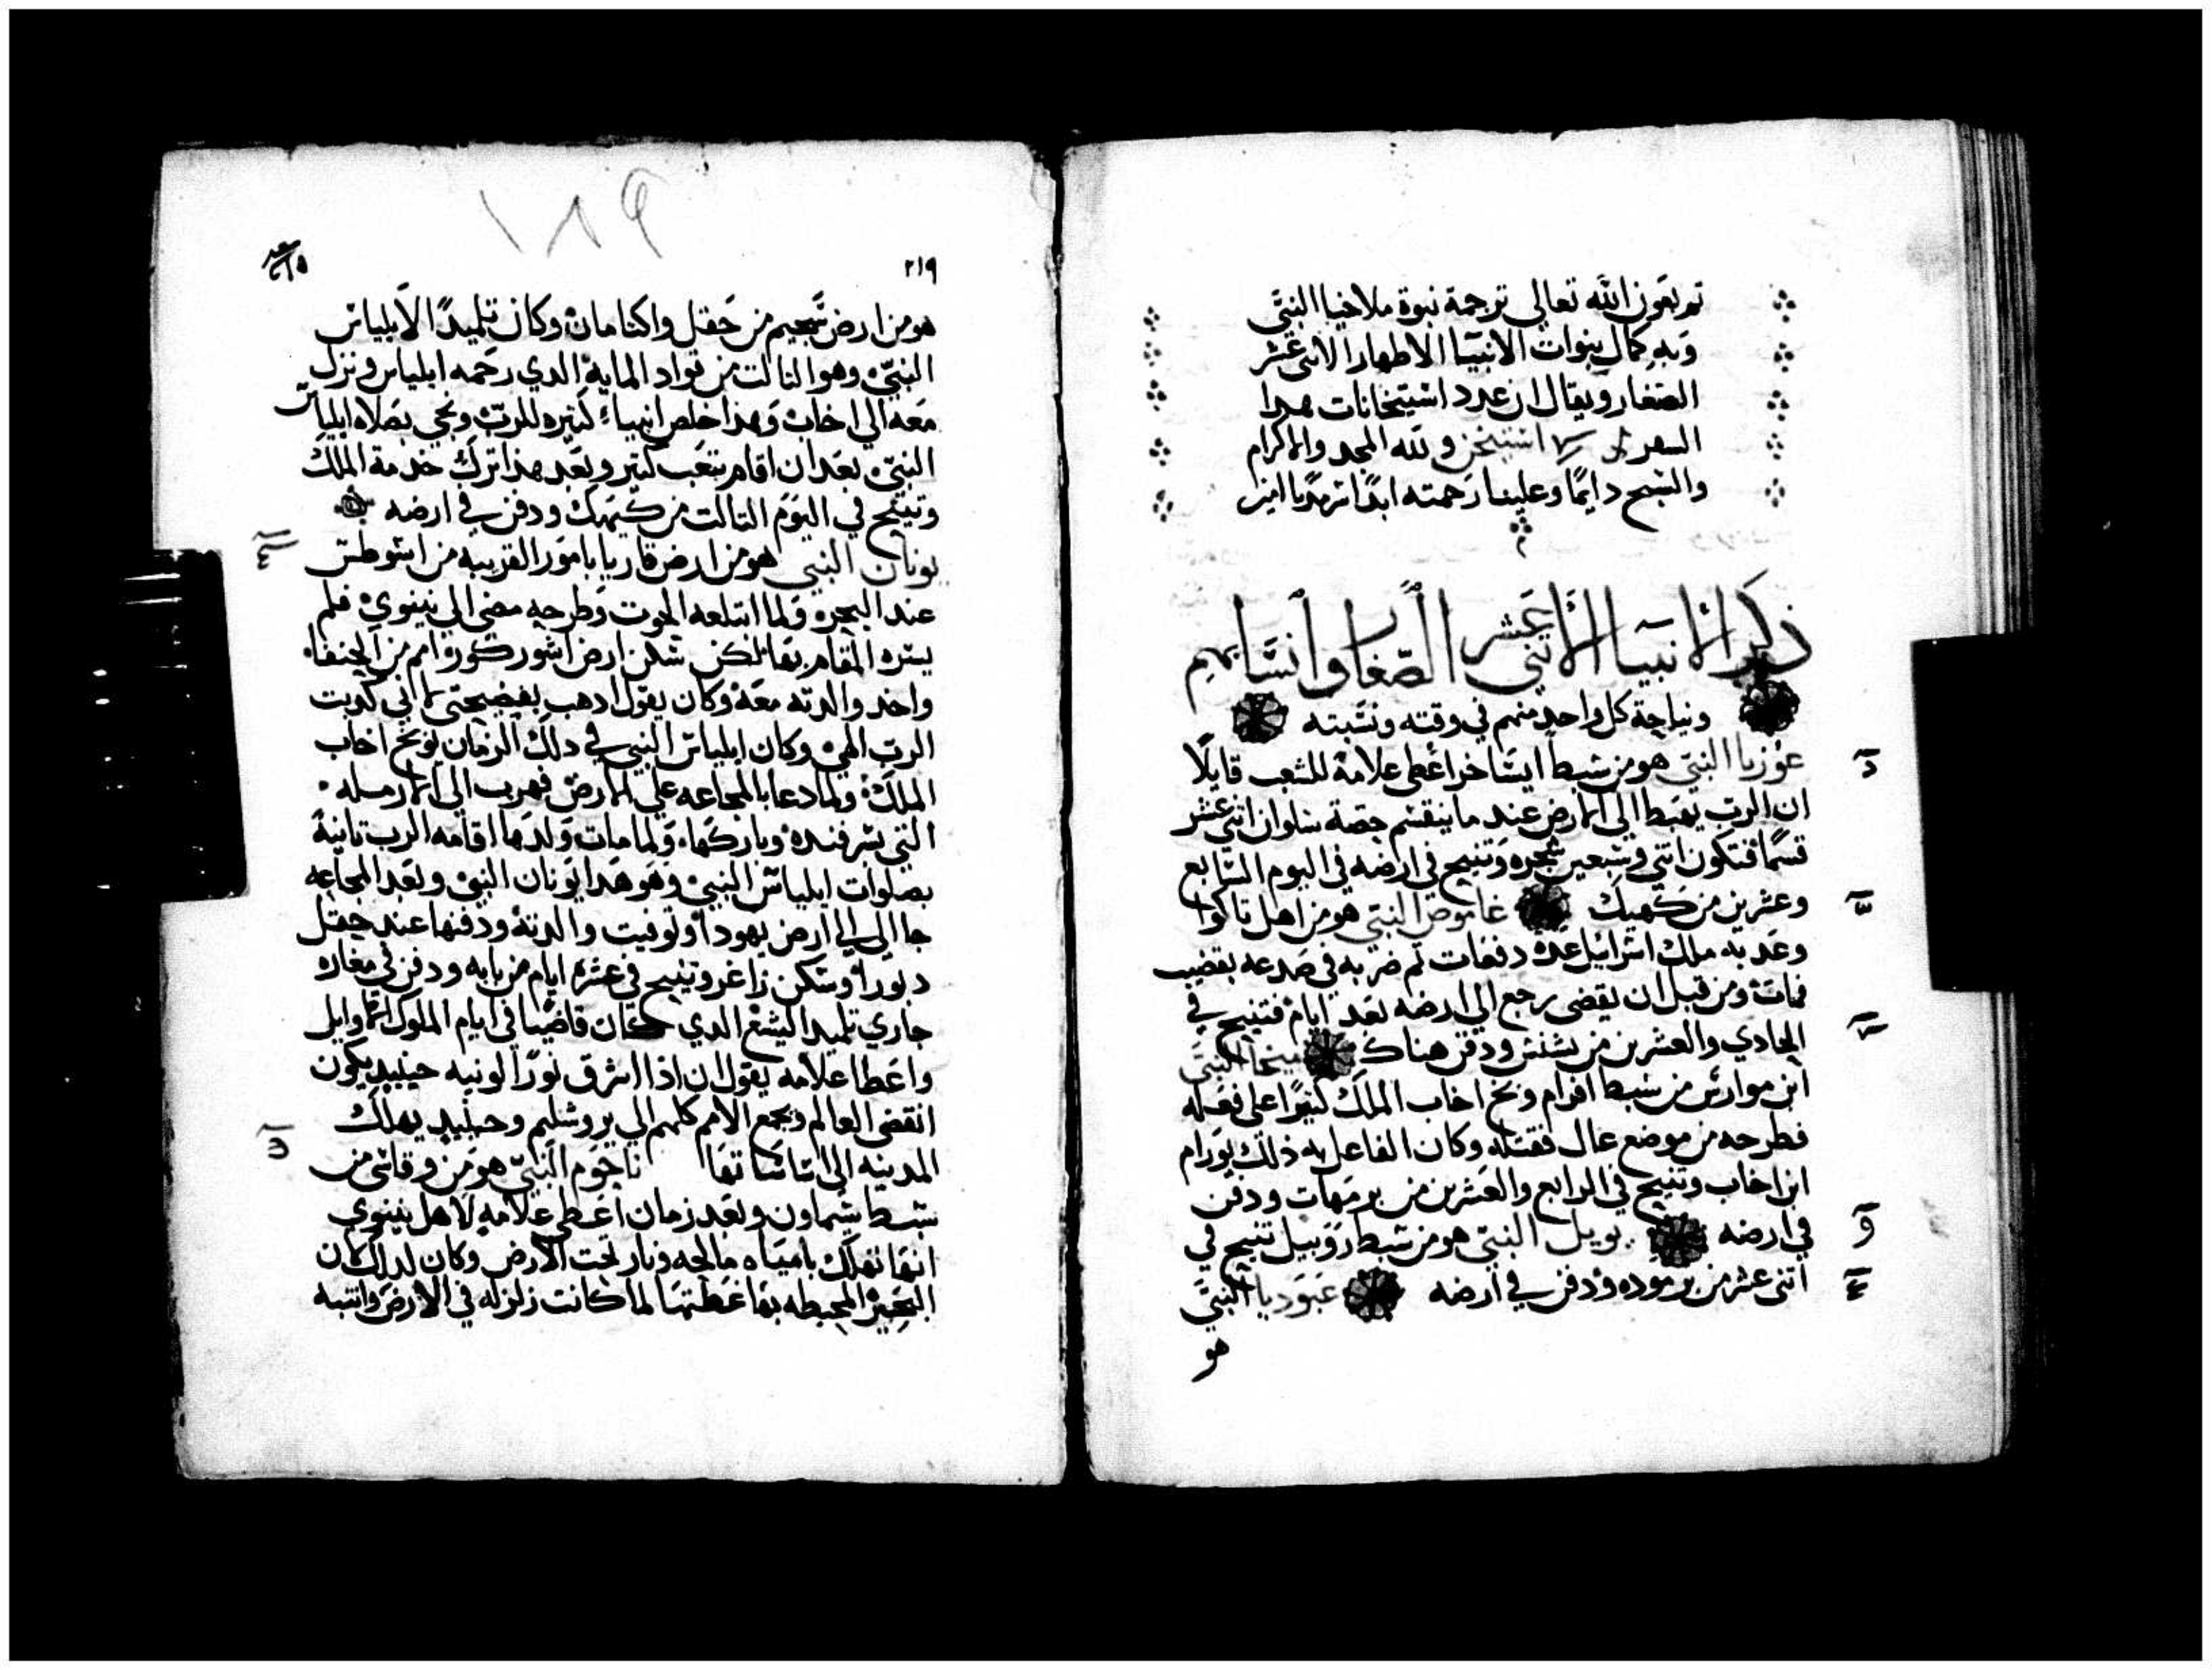 تم بعون الله تعالى ترجمة نبوة ملاخيا النبي
وبه كمال نبوات الانبيا الاطهار الاثني عشر
الصغار ويقال ان عدد استيخانات هدا
السفر استيخن ولله المجد والاكرام
والتسبح دايمًا وعلينا رحمته ابدًا سرمديًا امين
ذكر الانبيا الاثني عشر الصغار وانسابهم
ونياحة كل واحد منهم في وقته ونسبته
عوزيا النبي هو من سبط ايساخر اعطى علامة للشعب قايلًا
ان الرب يهبط الي الارض عند ما ينقسم حصة سلوان اتني عشر
قسمًا فتكون اتني وسبعين شجره وتنيح في ارضه في اليوم السابع
وعشرين من كهيك غاموص النبي هو من اهل تاكوا
وعد به ملك اسرائيل عدة دفعات ثم ضربه في صدعه بقضيب
فمات ومن قبل ان يقضى رجع الي ارضه بعد ايام فتنيح في
الحادي والعشرين من بشنس ودفن هناك ميخا النبي
ابن موارس من سبط افرام وبخ اخاب الملك كثيرًا على فعله
فطرحه من موضع عال فقتله وكان الفاعل به ذلك يورام
ابن اخاب وتنيح في الرابع والعشرين من برمهات ودفن
في ارضه يويل النبي هو من سبط روبيل تنيح في
اتنى عشر من برموده ودفن في ارضه عبوديا النبي
هو
١٨٩
٢١٩
هو من ارض شجيم من حقل واكنامان وكان تلميدًا لايلياس
النبي وهو التالت من قواد الماية الدي رحمه ايلياس ونزل
معه الي اخاب وهدا خلص انبياء كثيره للرب ونجي بصلاه ايلياس
النبي بعد ان اقام بتعب كتير وبعد هدا ترك خدمة الملك
وتنيح في اليوم التالت من كيهك ودفن في ارضه
يونان النبي هو من ارض قاريا بامور القريبه من اشوطس
عند البحره ولما ابتلعه الحوت وطرحه مضى الي نينوي فلم
يسره المقام بها لكن سكن ارض اشور كورة امم من الحنفا
واخد والدته معه وكان يقول ادهب بفضيحتي لاني كدبت
الرب الهي وكان ايلياس النبي في دلك الزمان يوبخ اخاب
الملك ولما دعا بالمجاعه علي الارض فهرب الي الارمله
التي بسرفنده وباركها ولما مات ولدها اقامه الرب تانية
بصلوات ايلياس النبي وهو هدا يونان النبي وبعد المجاعه
جا الي ارض يهودا وتوفيت والدتة ودفنها عند حقل
دبورا وسكن زاغر وتنيح في عشرة ايام من بابه ودفن في مغارة
جاري تلميد اليشع الدي كان قاضيا في ايام الملوك الاوايل
واعطا علامه يقول ان اذا اشرق نورًا لونيه حينيد يكون
انقضى العالم ويجمع الامم كلهم الي يروشليم وحينيد يهلك
المدينه الي اساساتها ناحوم النبي هو من وقاش من
سبط شمعاون وبعد زمان اعطى علامه لاهل نينوي
انها تهلك بامياه مالحه ونار تحت الارض وكان لدلك كان
البحيرة المحيطه بها غطتها لما كانت زلزله في الارض وانتبه